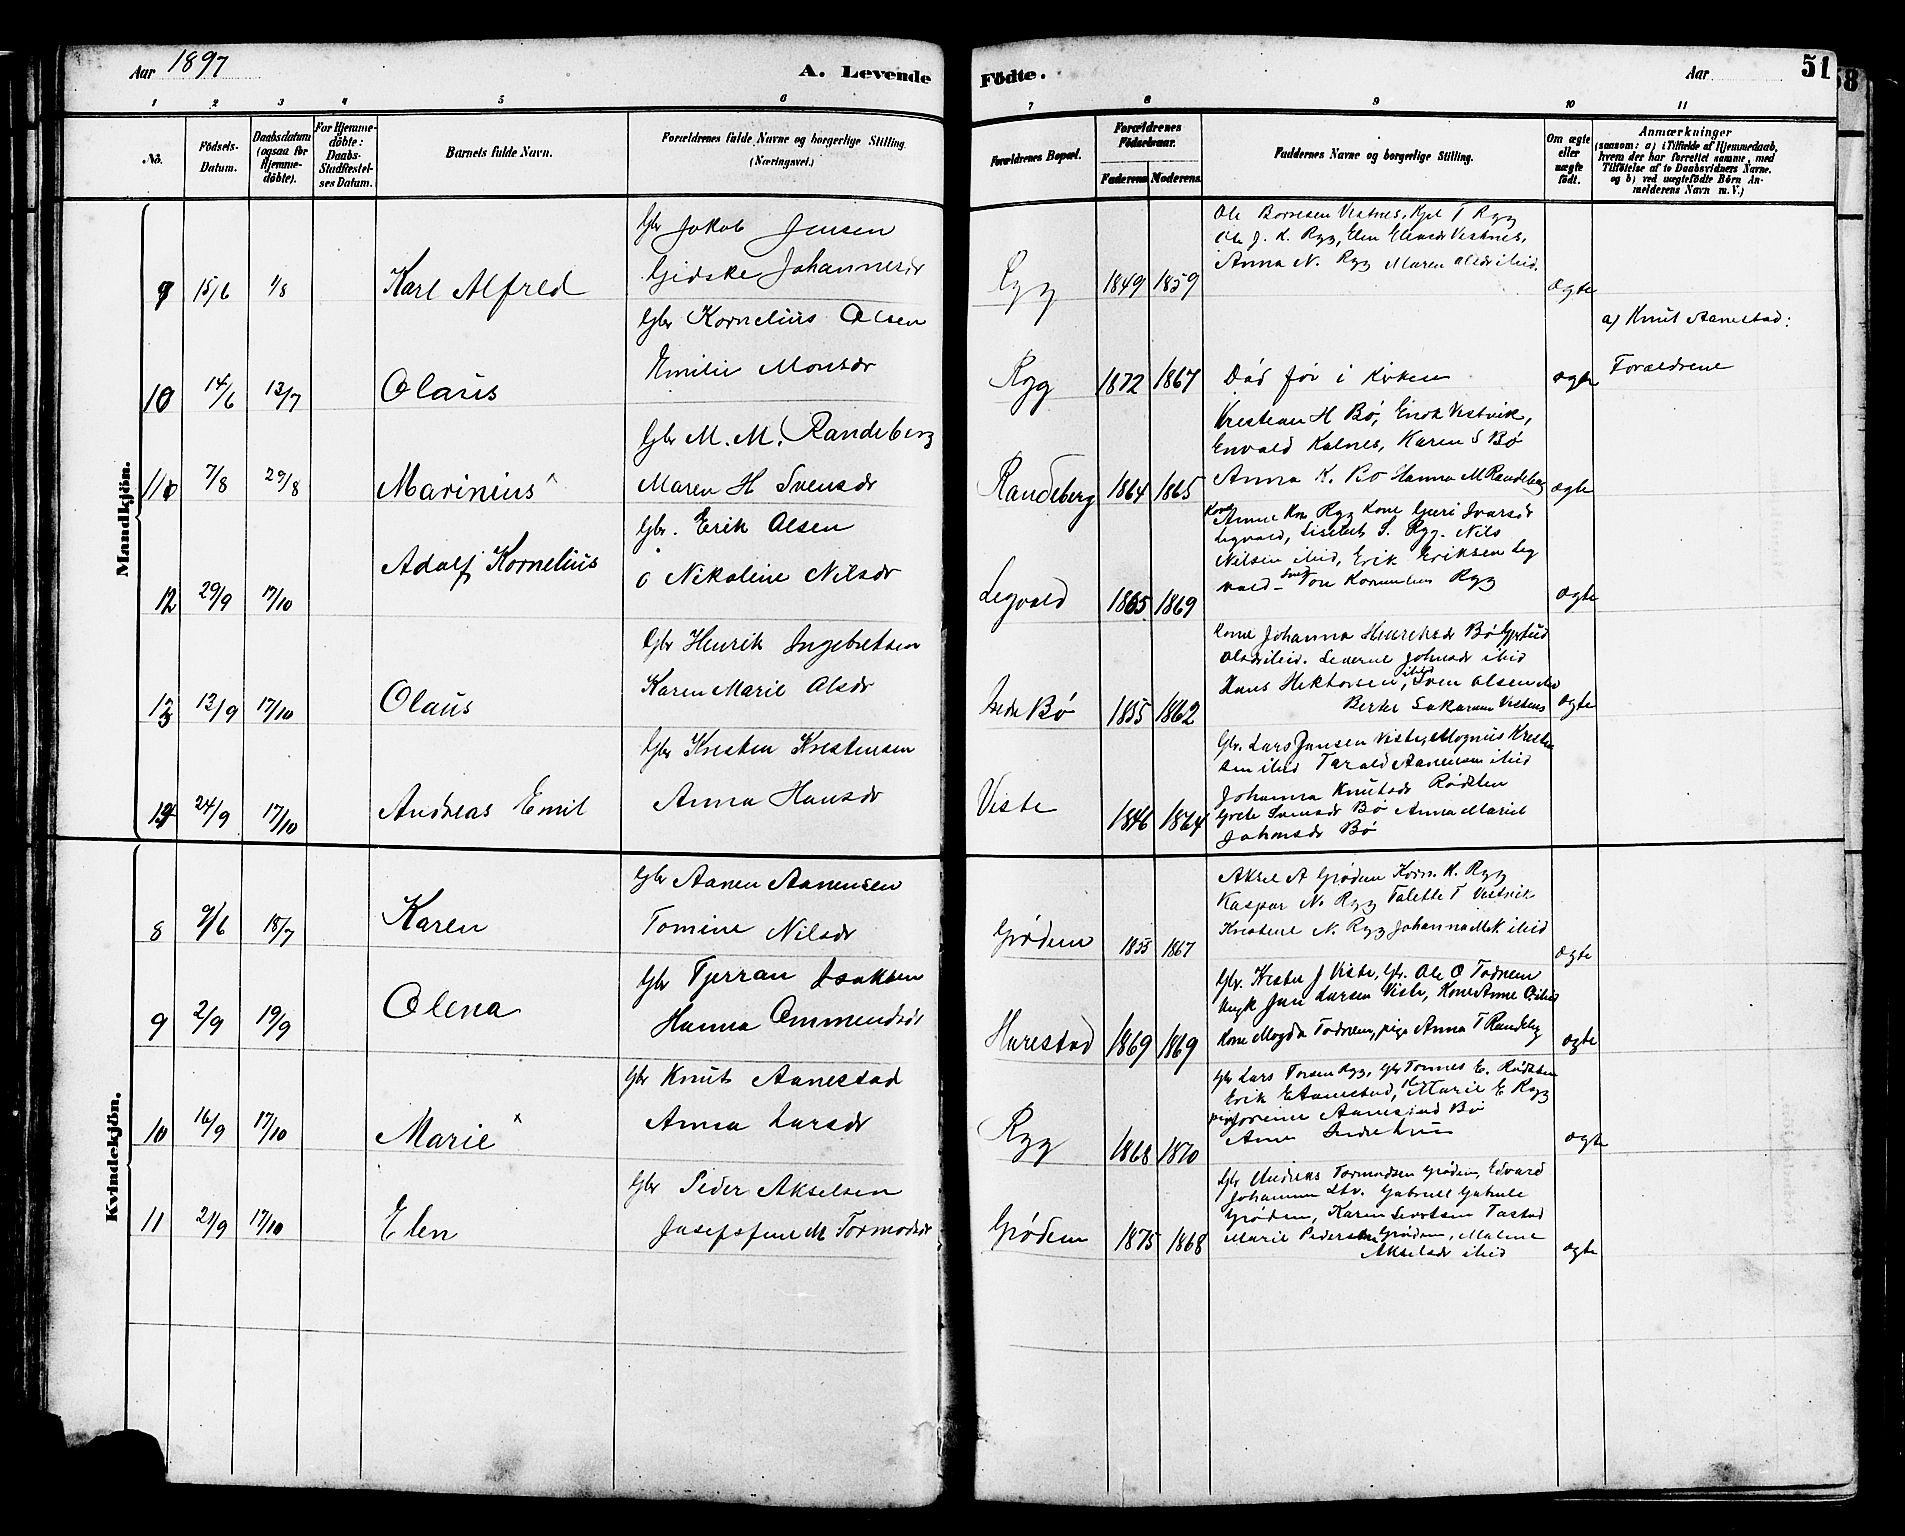 Aar 1897
A. Levende
Födte.
Aar
51
58
1 2 3 4 5 6 7 8 9 10 11
No.
Födsels-Datum.
Daabsdatum (ogsaa for Hjemme-döbte).
For Hjemme-döbte: Daabs-Stadfæstel-ses Datum.
Barnets fulde Navn.
Forældrenes fulde Navne og borgerlige Stilling. (Næringsvei.)
Forældrenes Bopæl.
Forældrenes Födselsaar.
Faderens Moderens
Faddernes Navne og borgerlige Stilling.
Om ægte eller uægte födt.
Anmærkninger
(saasom: a) i Tilfælde af Hjemmedaab, hvem der har forrettet samme, med Tilföielse af to Daabsvidners Navne. og b) ved uægtefödte Börn An-melderens Navn m. V.)
Mandkjön.
Gbr Jakob Jensen
Gidske Johannesdr
9 15/6 1/8 Karl Alfred
Ryg 1849 1859
Ole Børresen Vestnes, Kjel T Ryg
Ole J. K. Ryg, Elen Elevsdr Vestnes,
Anna N. Ryg Maren Olsdr ibid.
ægte
Gbr Kornelius Olsen
Emilie Monsdr
10 14/6 13/7 Olaus
Ryg 1872 1867 Død før i Kirken ægte
a) Knut Aanestad:
Forældrene
Gbr M. M. Randeberg
Maren H Svensdr
11 7/8 29/8 Marinius
Randeberg 1864 1865
Krestian H Bø, Enok Vestvik,
Envald Kalnes, Karen S Bø
Anna K. Bø Hanna M Randeberg
ægte
Gbr. Erik Olsen
o Nikoline Nilsdr
12 29/9 17/10 Adolf Kornelius
Legvold 1865 1869
Kone Anne Ryg Kone Guri Ivarsdr
Legvold, Liselbet S. Ryg. Nils
Nilsen ibid, Erik Eriksen Leg
vold - Tore Kornelius Ryg
ægte
Gbr Henrik Ingebretsen
Karen Marie Olsdr
13 13/9 17/10 Olaus
Indre Bø 1855 1862
Kone Johanna Henriksdr Bø Gjertrud
Olsdr ibid. Severine Johnsdr ibid
Hans Hektorsen ibid, Sven Olsen ibid
ægte
Gbr Kresten Krestensen
Anna Hansdr
14 24/9 17/10 Andreas Emil
Viste 1846 1864
Gbr. Lars Jansen Viste, Mognus Kresten
sen ibid Tarald Aanensen ibid
Johanna Knutsdr Rødklen
Grete Svensdr Bø Anna Marie
Johnsdr Bø
Kvindekjön.
Gbr Aanen Aanensen
Tomine Nilsdr
8 9/6 18/7 Karen
Grødem 1855 1867
Aksel A Grødem Korn. K. Ryg
Kaspar N. Ryg Talette T Vestvik
Kristine N. Ryg Johanna M K. ibid
ægte
Gbr Tjerran Isaksen
Hanna Ommundsdr
9 2/9 19/9 Olena
Harestad 1869 1869
Gbr. Kresten J Viste, Gbr. Ole O Todnem
Ungk Jan Larsen Viste, Kone Anne O ibid
Kone Magda Todnem, pige Anna T Randeberg
ægte
Gbr Knut Aanestad
Anna Larsdr
10 16/9 17/10 Marie
Ryg 1868 1870
Gbr Lars Torsen Ryg, Gbr Tonnes E. Rødklen
Erik E Aanestad, Marie E Ryg
ægte
Gbr Peder Akselsen
Josefsfine M Tormodsdr
11 21/9 17/10 Elen
Grødem 1875 1868
Gbr Andreas Tormodsen Grødem, Edvard
Johannesen Stv. Gabriell Gabriels
Grødem, Karen Sivertsen Tastad
Marie Pedersen Grødem, Malene
Akselsdr ibid
ægte